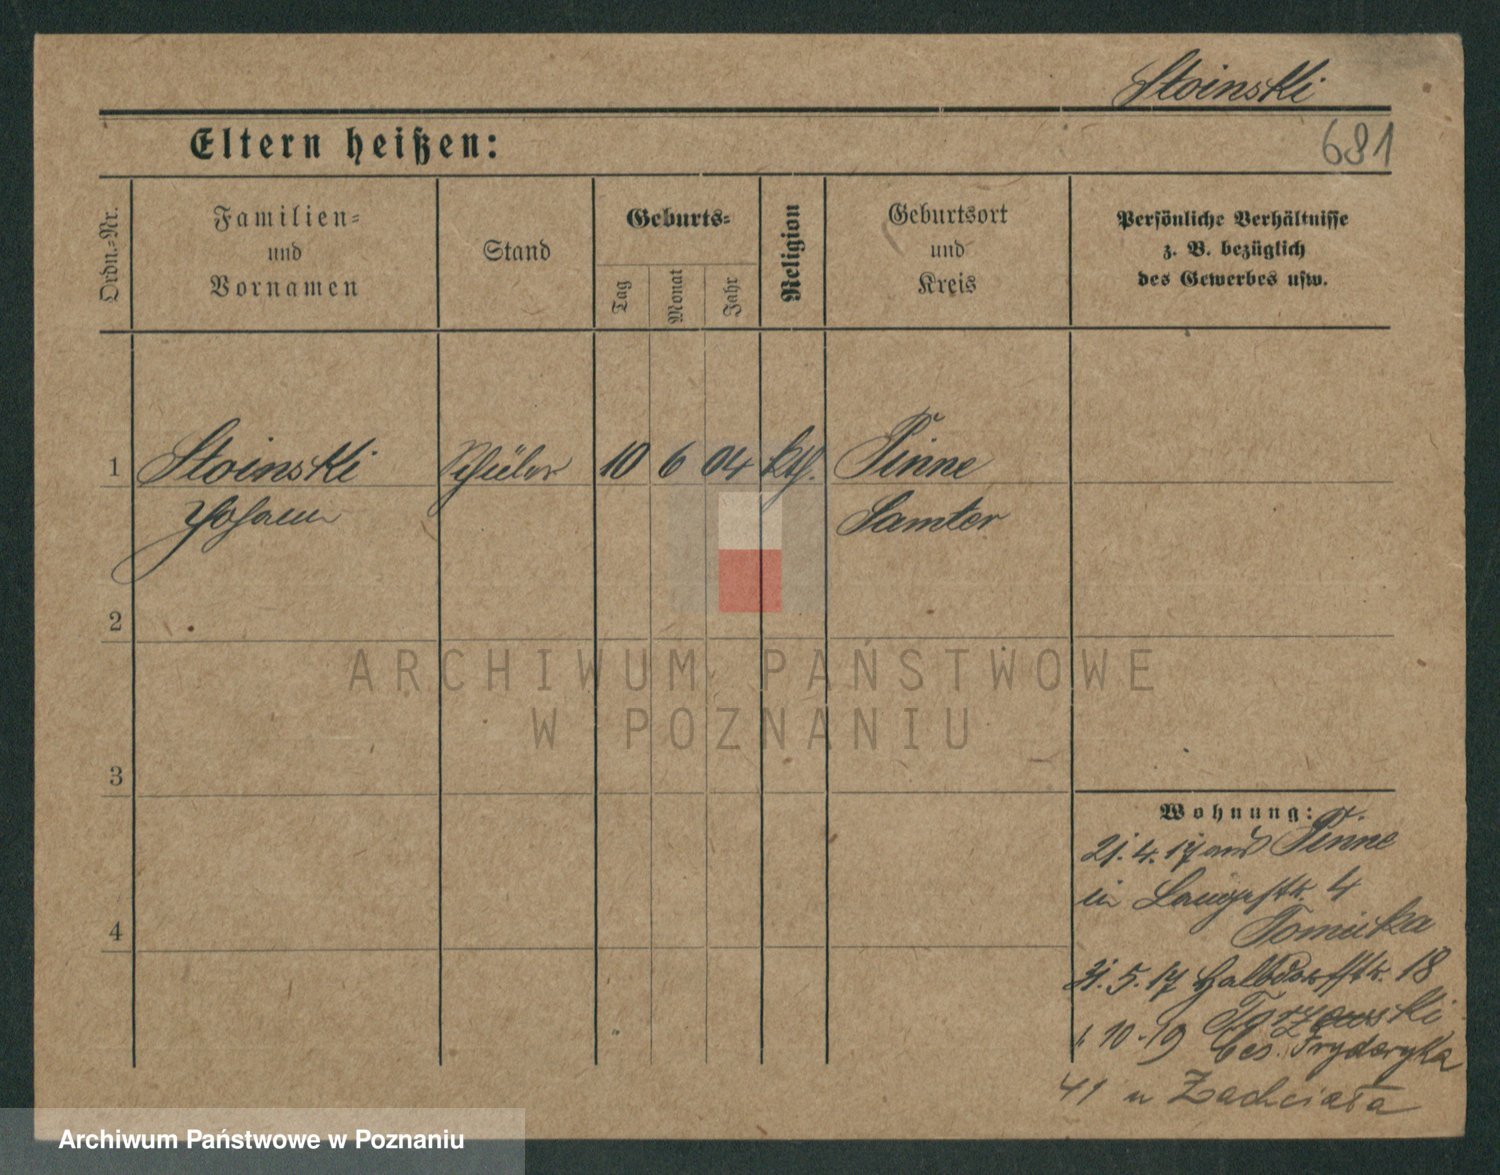 Stoinski
Eltern heißen:
681
Ordn.-Nr.
Familien-
und
Vornamen
Stand
Geburts-
Tag
Monat
Jahr
Religion
Geburtsort
und
Kreis
Persönliche Verhältnisse
z. B. bezüglich
des Gewerbes usw.
1 Stoinski Schüler 10 6 04 kth. Pinne
Johann Samter
2
ARCHIWUM PAŃSTWOWE
W POZNANIU
3
4
Wohnung:
21.4.17 aus Pinne
in Langestr. 4
Tomicka
31.5.17 Halbdorfstr. 18
1.10.19 ces. Fryderyka
41 u Zachciała
Archiwum Państwowe w Poznaniu